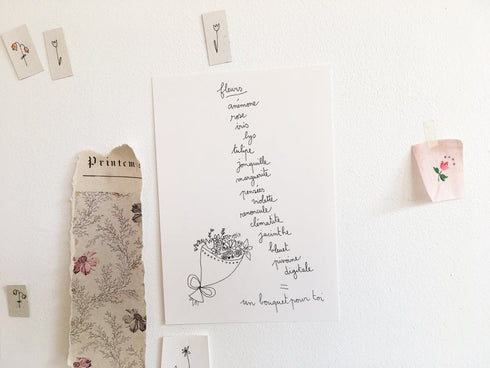 fleurs
anémone
rose
iris
lys
tulipe
jonquille
marguerite
pensées
violette
renoncule
clématite
jacinthe
bleuet
pivoine
digitale
=
un bouquet pour toi
Printem